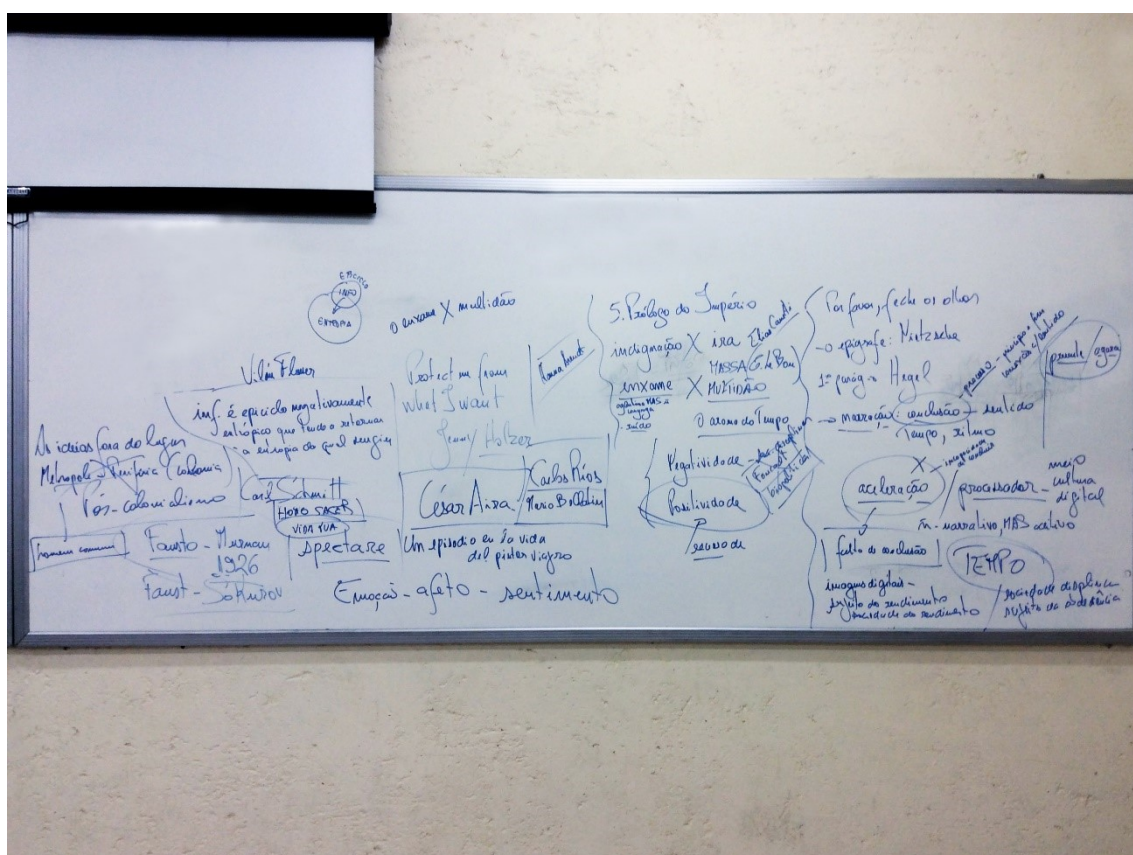 EPICICLO
INFO
ENTROPIA
Vilém Flusser
inf. é epiciclo negativamente
entrópico que tende a retornar
a entropia da qual surgiu
As ideias fora do lugar
Metrópole - Periferia (Colonia
Pós-colonialismo
homem comum
Fausto - Murnau
1926
Faust - Sókurov
Carl Schmitt
HOMO SACER
VIDA NUA
spectare
O enxame X multidão
Protect me from
what I want
Jenny Holzer
Hanna Arendt
César Aira
Carlos Ríos
Mario Bellatin
Un episodio en la vida
del pintor viajero
Emoção - afeto - sentimento
5. Prólogo do Império
indignação X ira Elias Canetti
MASSA/G. Le Bon
enxame X MULTIDÃO
- ruído
O aroma do Tempo
Negatividade - soc. disciplinar
Foucault
biopolítica
Positividade
Por favor, feche os olhos
→ epígrafe: Nietzsche
1º parág. Hegel
→ narração: conclusão - sentido
Tempo, ritmo
processo - princípio e fim
presente / agora
X
aceleração
processador - meio
cultura
digital
ñ - narrativo, MAS aditivo
falta de conclusão
TEMPO
imagens digitais -
sujeito do rendimento
sociedade do rendimento
sociedade disciplinar
sujeito da obediência